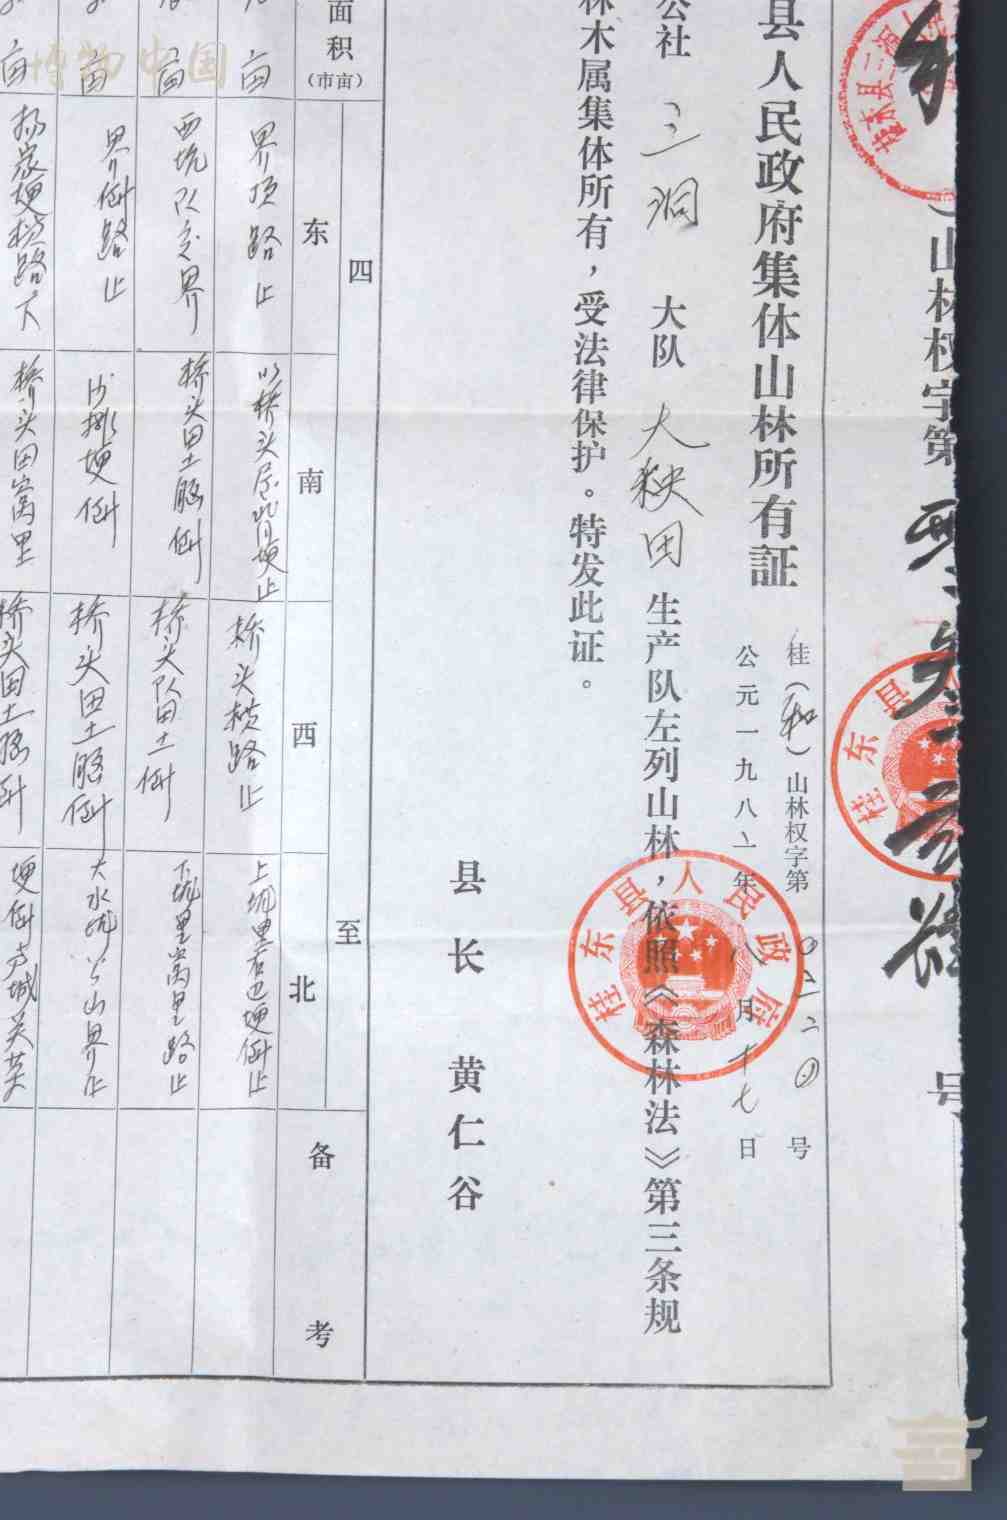 山林权字第
号
桂(和)山林权字第〇三二四号
县人民政府集体山林所有証
公元一九八二年八月十七日
公社 三洞 大队 大秧田 生产队左列山林，依照《森林法》第三条规
林木属集体所有，受法律保护。特发此证。
县长 黄仁谷
桂东县人民政府
桂东县人
四至
面积(市亩) 东 南 西 北 备考
亩 界顶路止 桥头横路止 上坑里右边埂倒止
亩 西坑队交界 桥头田土膀倒 桥头队田土倒 下坑里窝里路止
亩 界倒路止 沙埂倒 桥头田土膀倒 大水坑公山界止
亩 杨家埂横路下 桥头田窝里 桥头田土膀倒
博物中国